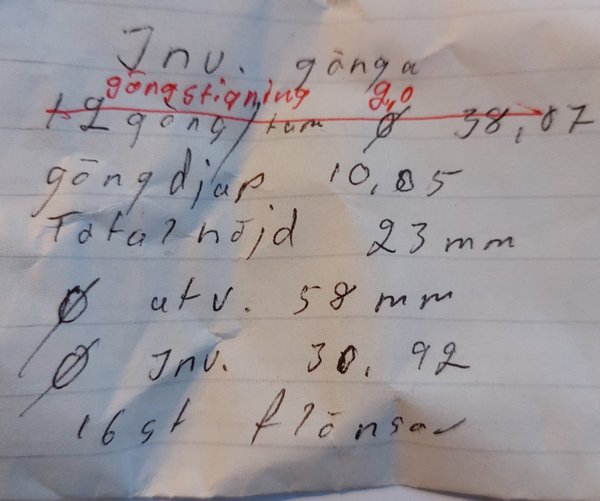 Inv. gänga
gängstigning 2,0
12 gäng/tum Ø 38,07
gängdjup 10,05
Total höjd 23 mm
Ø utv. 58 mm
Ø Inv. 30,92
16 st flänsar